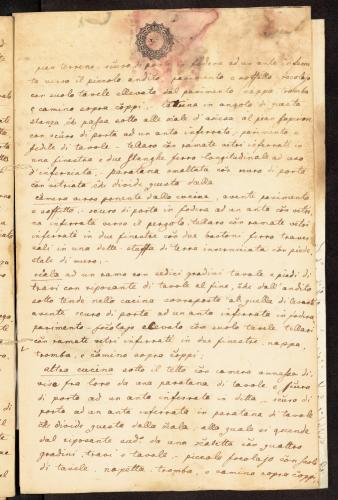 pian terreno, scuro di porta in fodera ad un ante inferra
ta verso il piccolo andito, pavimento e soffitto, focolajo
con suolo tavole ellevato dal pavimento, nappa, tromba
e camino sopra coppi,
stanza si passa sotto alle scale d'ascesa al pian superiore
con scuro di porta ad un anto inferrato, pavimento e
di tavole - tellaro con ramate vetri inferrati in
una finestra e due stanghe ferro longitudinali ad uso
d'inferriata, paratana smaltata con scuro di porta
con vetriata che divide questa dalla
camera verso ponente dalla cucina, avente pavimento
e soffitto, scuro di porta in fodera ad un anto con vetri
na inferrata verso il pergolo, tellaro con ramate vetri
inferrati in due finestre con due bastoni ferro traver
sali in una delle stuffa di terra inverniciata con piede
stali di
scala ad un ramo con sedici gradini tavole e piedi di
travi con riposante di tavole al fine, che dall'andito
sotto tende nella cucina sovraposta a quella di levante
avente scuro di porta ad un anto inferrato in fodera
pavimento focolajo ellevato con suolo tavole tellari
con ramate vetri inferrati in due finestre, nappa,
tromba, e camino sopra coppi;
altra cucina sotto il tetto con camera annessa di
vise fra loro da una paratana di tavole, scuro
di porta ad un anto inferrato in ditta - scuro di
porta ad un anto inferrato in paratana di tavole
che divide questa dalla scala, alla quale si ascende
dal riposante con quattro
gradini, travi e tavole - piccolo focolajo con suolo
di tavole, napetta, tromba, e camino sopra coppi,